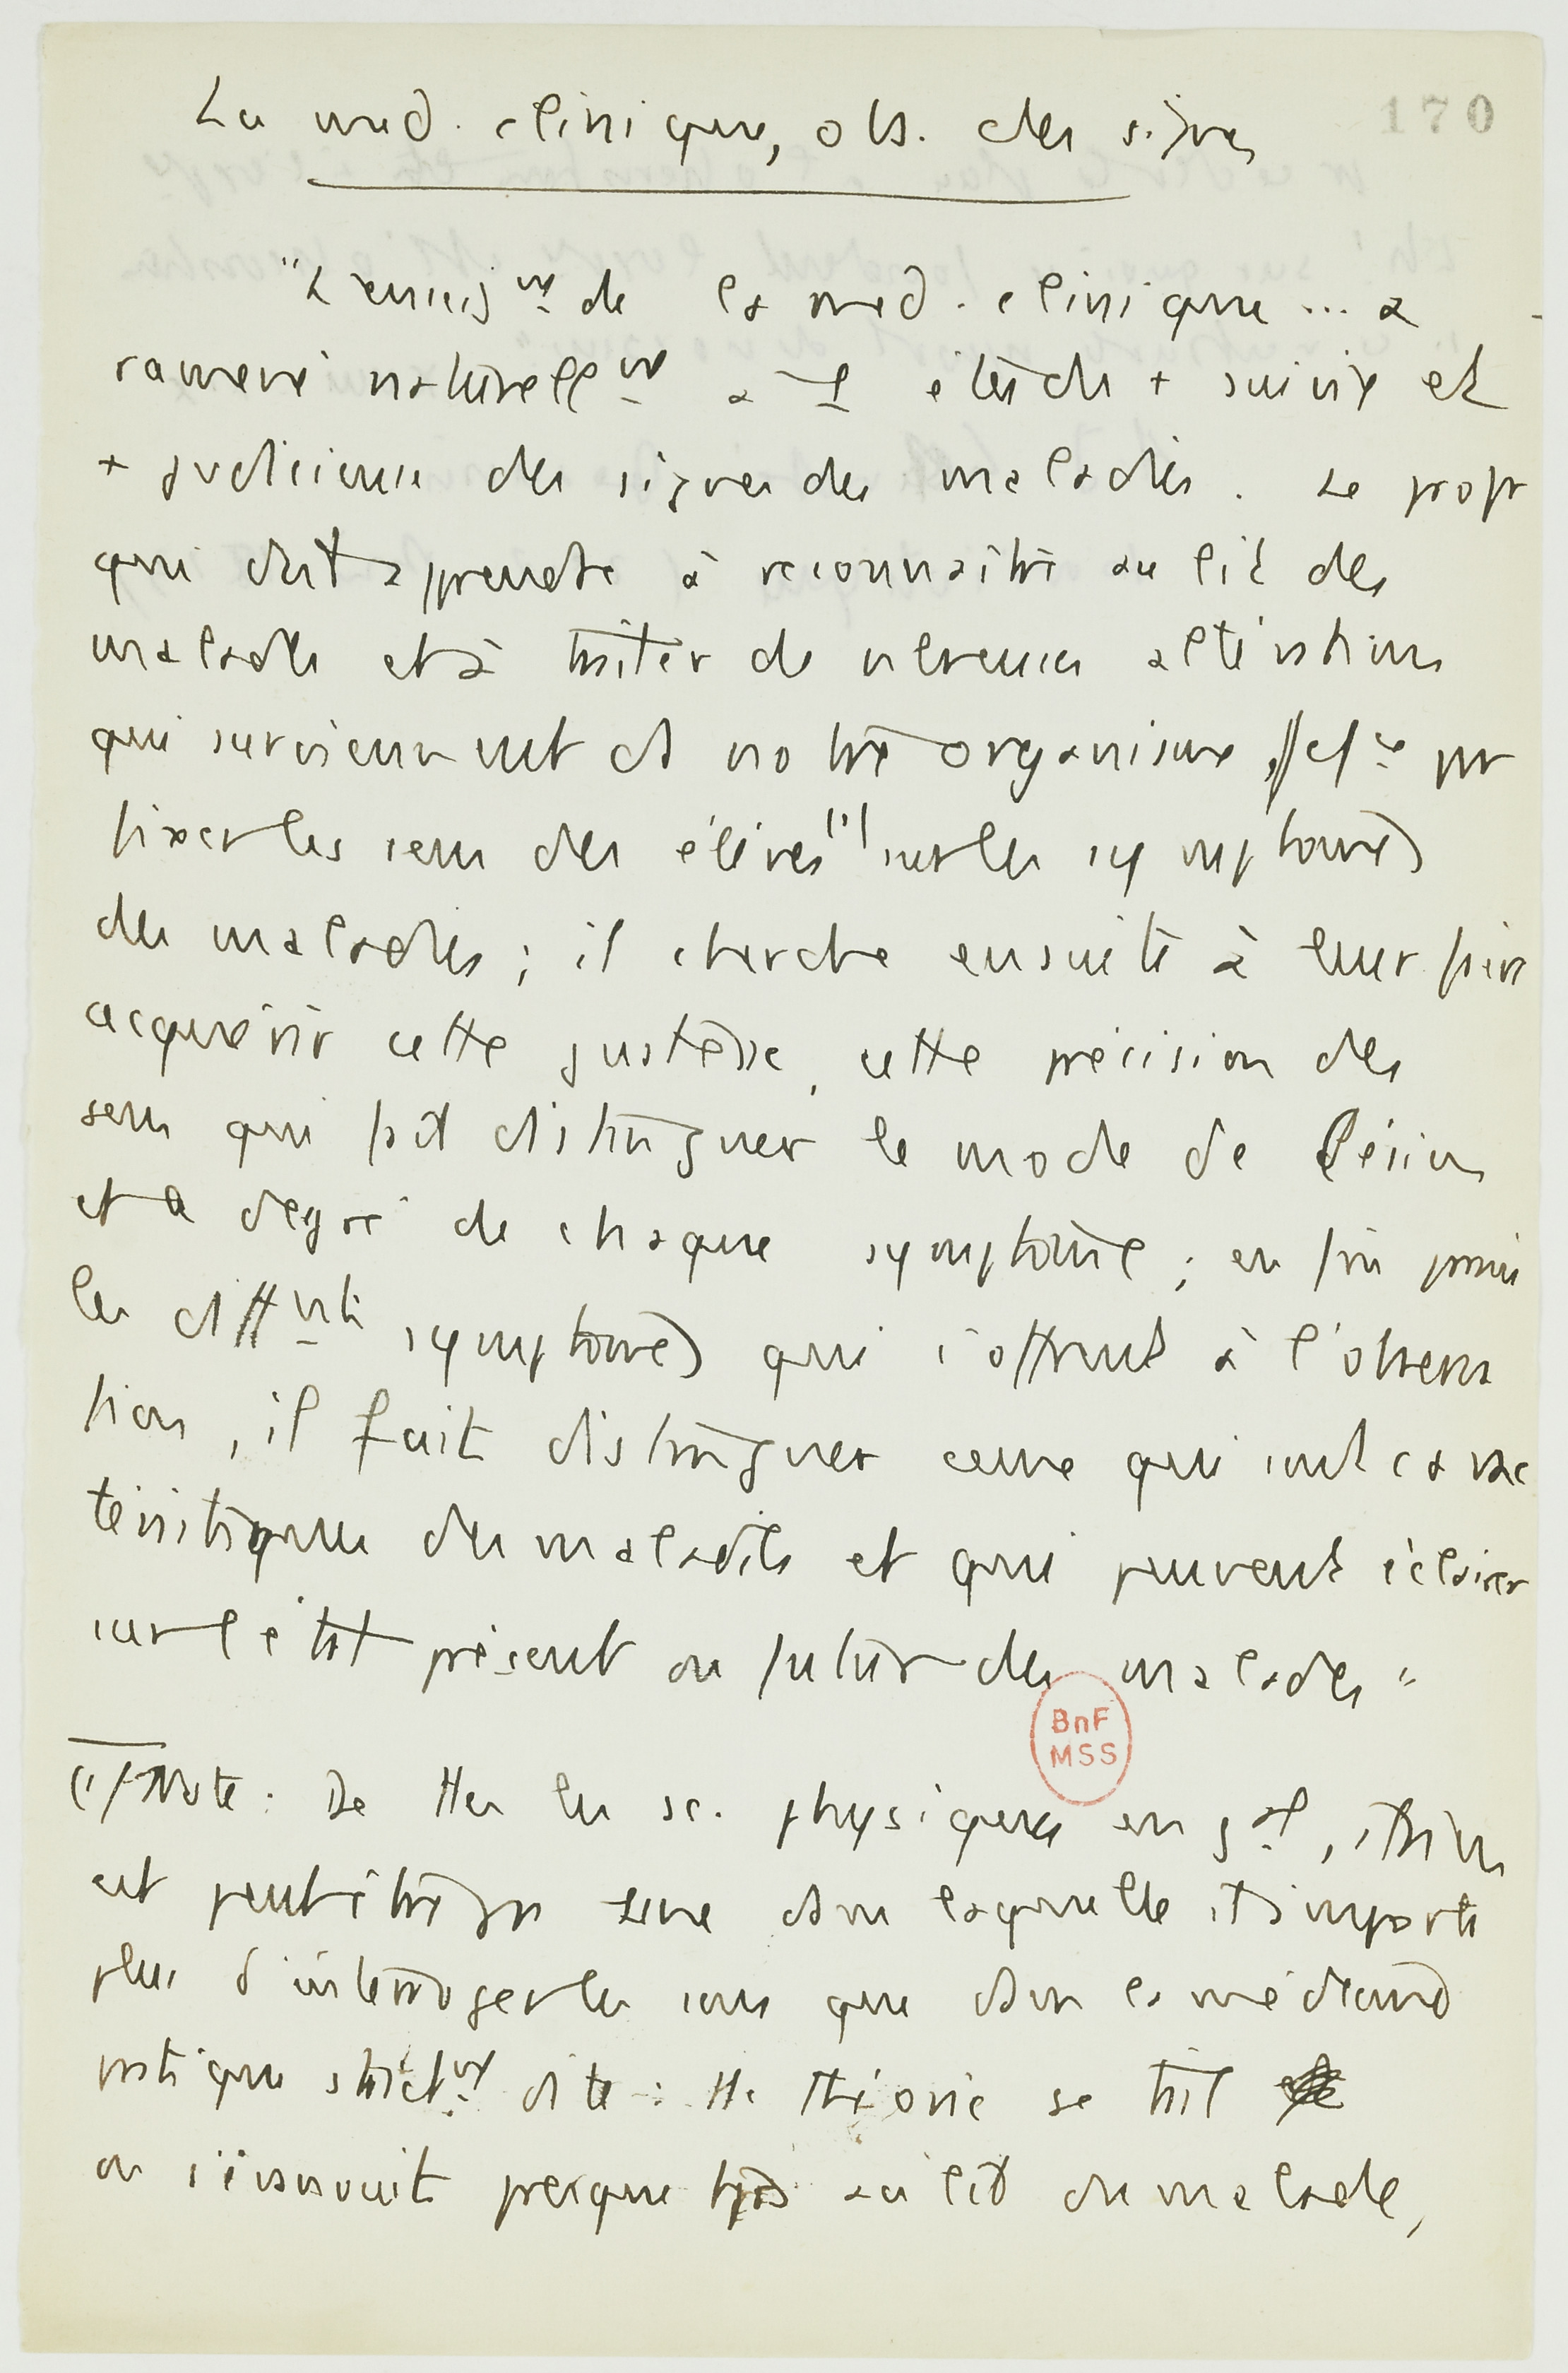 La med. clinique, obs. des signes
170
"L'enseigt de la med. clinique ... a
ramené naturellemt a 1 étude + suivie et
+ judicieuse des signes des maladies. Le prof
qui doit apprendre à reconnaître au lit des
malades et à traiter de nbreuses altérations
qui surviennent ds notre organisme, pr
fixer les sens des élèves (1) sur les symptomes
des maladies ; il cherche ensuite à leur faire
acquérir cette justesse, cette précision des
sens qui fait distinguer le mode de lésion
et le degré de chaque symptome ; enfin parmi
les diffnts symptomes qui s'offrent à l'observa
tion, il fait distinguer ceux qui sont carac
téristiques des maladies et qui peuvent éclairer
sur l'état présent ou futur des malades"
BnF
MSS
(1) Note : De ttes les sc. physiques en gal, il n'en
est peut être pas une dans laquelle il importe
plus d'interroger les sens que dans la médecine
pratique strictmt dite : tte théorie se tait
ou s'évanouit presque tjs au lit du malade,